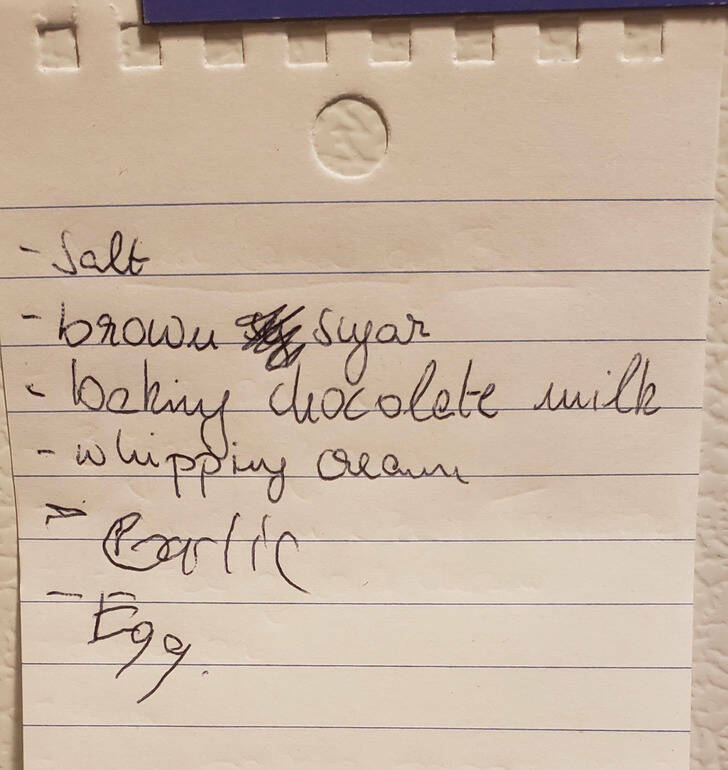 - Salt
- brown sugar
- baking chocolate milk
- whipping cream
- Garlic
- Egg.